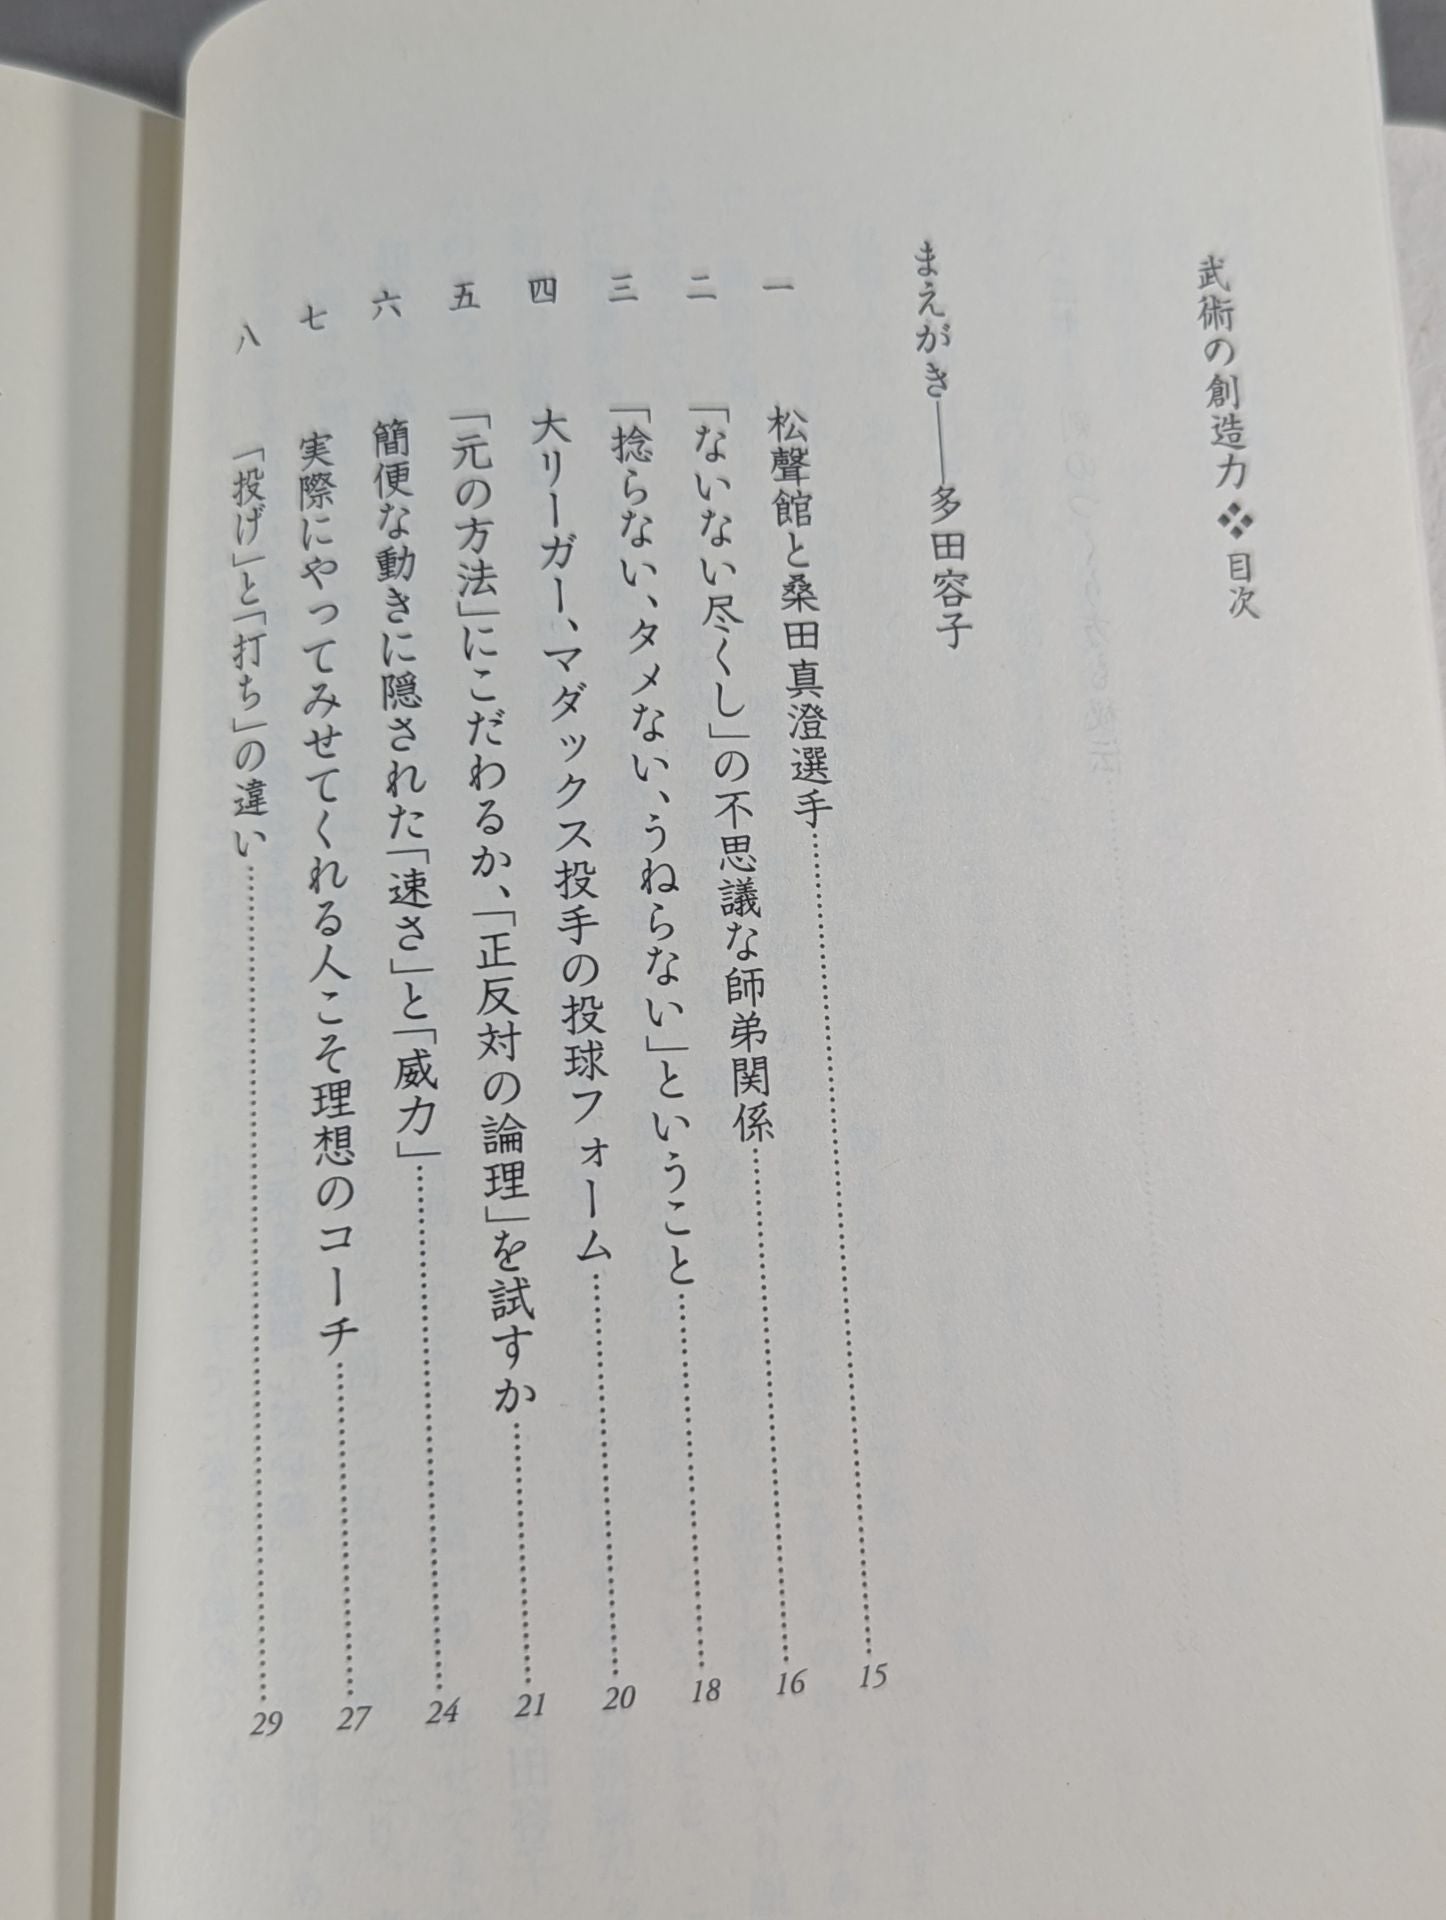 武術の創造力❖目次
まえがき――多田容子
一 松聲館と桑田真澄選手……15
二 「ないない尽くし」の不思議な師弟関係……16
三 「捻らない、タメない、うねらない」ということ……18
四 大リーガー、マダックス投手の投球フォーム……20
五 「元の方法」にこだわるか、「正反対の論理」を試すか……21
六 簡便な動きに隠された「速さ」と「威力」……24
七 実際にやってみせてくれる人こそ理想のコーチ……27
八 「投げ」と「打ち」の違い……29